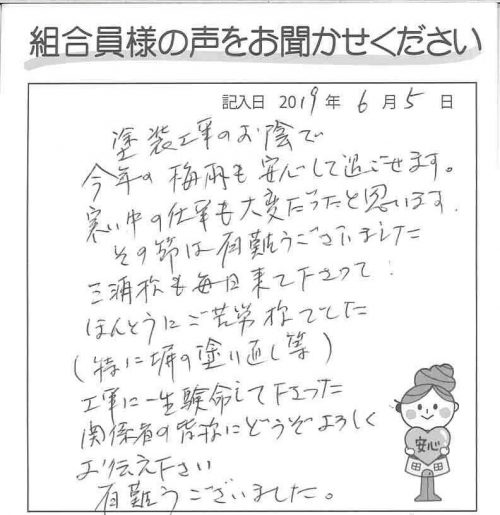 組合員様の声をお聞かせください
記入日 2019年 6月 5日
塗装工事のお陰で
今年の梅雨も安心して過ごせます。
寒い中の仕事も大変だったと思います.
その節は有難うございました
三浦様も毎日来て下さって!
ほんとうにご苦労様でした
(特に塀の塗り直し等)
工事に一生験命して下さった
関係者の皆様にどうぞよろしく
お伝え下さい
有難うございました。
安心